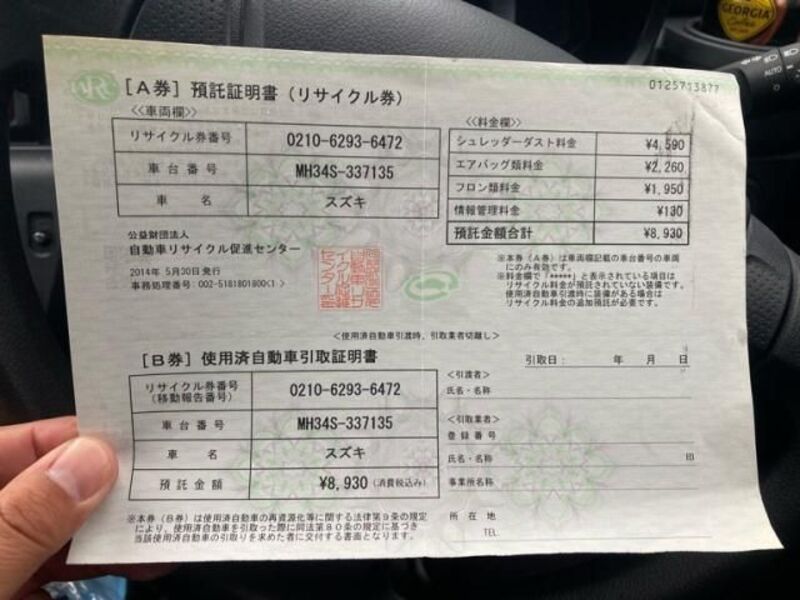 GEORGIA
AUTO
0125713877
[A券] 預託証明書（リサイクル券）
<<車両欄>>
リサイクル券番号 0210-6293-6472
車台番号 MH34S-337135
車名 スズキ
<<料金欄>>
シュレッダーダスト料金 ¥4,590
エアバッグ類料金 ¥2,260
フロン類料金 ¥1,950
情報管理料金 ¥130
預託金額合計 ¥8,930
公益財団法人
自動車リサイクル促進センター
2014年 5月30日発行
事務処理番号：002-5181801800<1>
※本券（A券）は車両欄記載の車台番号の車両
にのみ有効です。
※料金欄で「*****」と表示されている項目は
リサイクル料金が預託されていない装備です。
使用済自動車引渡時に装備がある場合は
リサイクル料金の追加預託が必要です。
<使用済自動車引渡時、引取業者切離し>
[B券] 使用済自動車引取証明書
リサイクル券番号
（移動報告番号） 0210-6293-6472
車台番号 MH34S-337135
車名 スズキ
預託金額 ¥8,930（消費税込み）
※本券（B券）は使用済自動車の再資源化等に関する法律第9条の規定
により、使用済自動車を引取った際に同法第80条の規定に基づき
当該使用済自動車の引取りを求めた者に交付する書面となります。
引取日： 年 月 日
<引渡者>
氏名・名称
<引取業者>
登録番号
氏名・名称 印
事業所名称
所在地
TEL